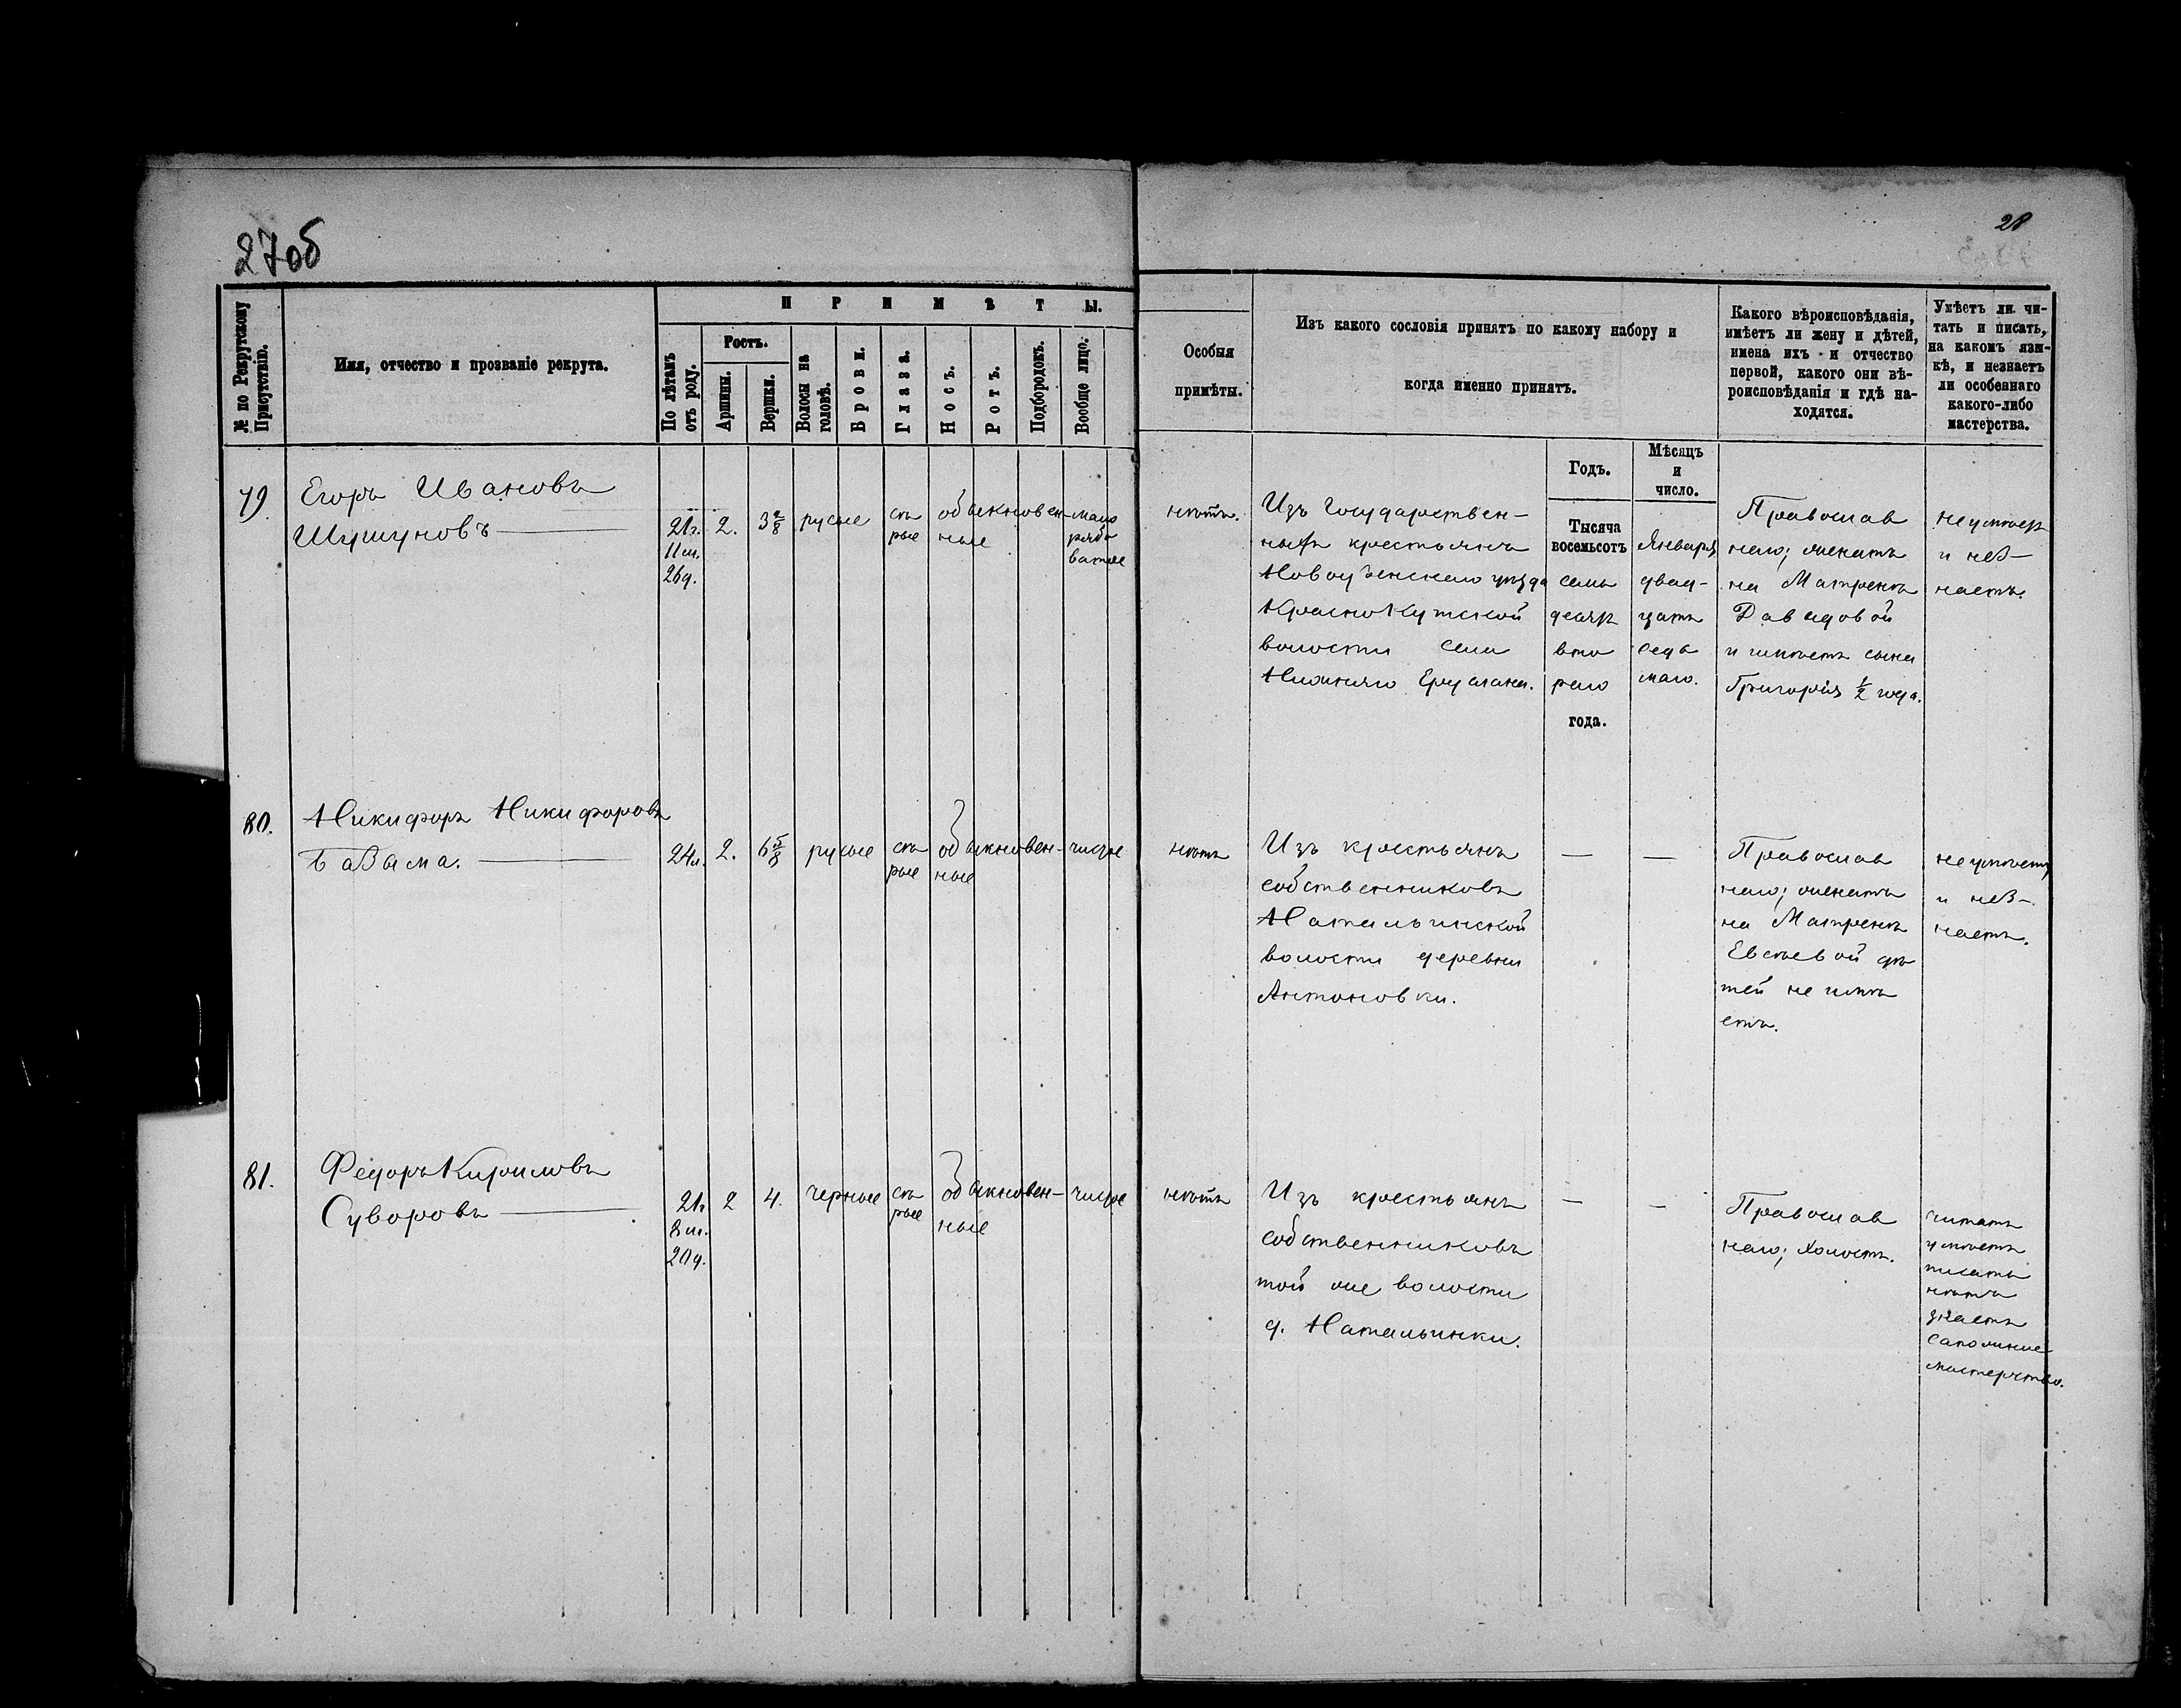 27об
28
№ по Рекрутскому Присутствію.
Имя, отчество и прозваніе рекрута.
ПРИМѢТЫ.
По лѣтамъ отъ роду.
Ростъ.
Аршины.
Вершки.
Волосы на головѣ.
Брови.
Глаза.
Носъ.
Ротъ.
Подбородокъ.
Вообще лицо.
Особыя
примѣты.
Изъ какого сословія принятъ по какому набору и
когда именно принятъ.
Годъ.
Мѣсяцъ
и
число.
Какого вѣроисповѣданія,
имѣетъ ли жену и дѣтей,
имена ихъ и отчество
первой, какого они вѣ-
роисповѣданія и гдѣ на-
ходятся.
Умѣетъ ли чи-
тать и писать,
на какомъ язы-
кѣ, и незнаетъ
ли особеннаго
какого-либо
мастерства.
79.
Егоръ Ивановъ
Шушуновъ
21г.
11м.
26д.
2.
3 2/8
русые
сѣ
рые
обыкновен-
ные
мало
рябо
ватое
нѣтъ.
Изъ Государствен-
ныхъ крестьянъ
Новоузенскаго уѣзда
Краснокутской
волости села
Нижняго Еруслана.
Тысяча
восемьсотъ
семь
десятъ
вто
раго
года.
Января
двад-
цать
седь
маго.
Православ
наго; женатъ
на Матренѣ
Давыдовой
и имѣетъ сына
Григорія 1/2 года.
неумѣетъ
и нез-
наетъ.
80.
Никифоръ Никифоровъ
24л.
2.
6 5/8
русые
сѣ
рые
обыкновен-
ные
чистое
нѣтъ
Изъ крестьянъ
собственниковъ
Натальинской
волости деревни
Антоновки.
—
—
Православ
наго; женатъ
на Матренѣ
Евсѣевой дѣ
тей не имѣ
етъ.
неумѣетъ
и нез-
наетъ.
81.
Федоръ Кириловъ
Суворовъ
21г
8м.
20д.
2
4.
черные
сѣ
рые
обыкновен-
ные
чистое
нѣтъ
Изъ крестьянъ
собственниковъ
той же волости
д. Натальинки.
—
—
Православ
наго; холостъ.
читать
умѣетъ
писать
нѣтъ
знаетъ
сапожное
мастерство.